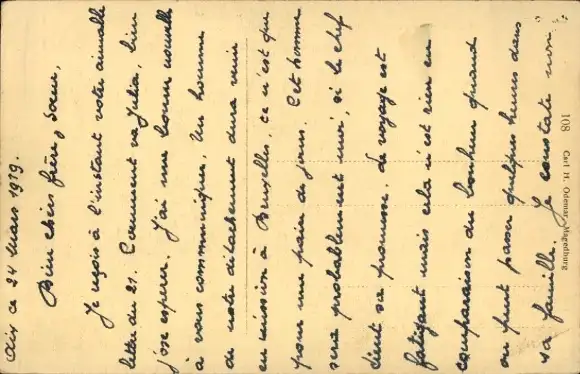 Aix ce 24 Mars 1939.
Bien chers frère, soeur,
Je reçois à l'instant votre aimable
lettre du 21. Comment va Julia, bien
j'ose espérer. J'ai une bonne nouvelle
à vous communiquer, Un homme
de notre détachement devra venir
en mission à Bruxelles, ce n'est que
pour une paire de jours. Cet homme
sera probablement moi, si le chef
tient sa promesse. Le voyage est
fatigant mais cela n'est rien en
comparaison du bonheur quand
on peut passer quelques heures dans
sa famille. Je constate non
108 Carl H. Odemar, Magdeburg